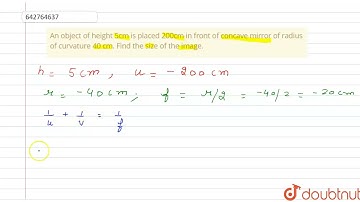 642764637
An object of height 5cm is placed 200cm in front of concave mirror of radius
of curvature 40 cm. Find the size of the image.
h = 5 cm , u = - 200 cm
r = - 40 cm ; f = r/2 = -40/2 = -20cm
1/u + 1/v = 1/f
doubtnut